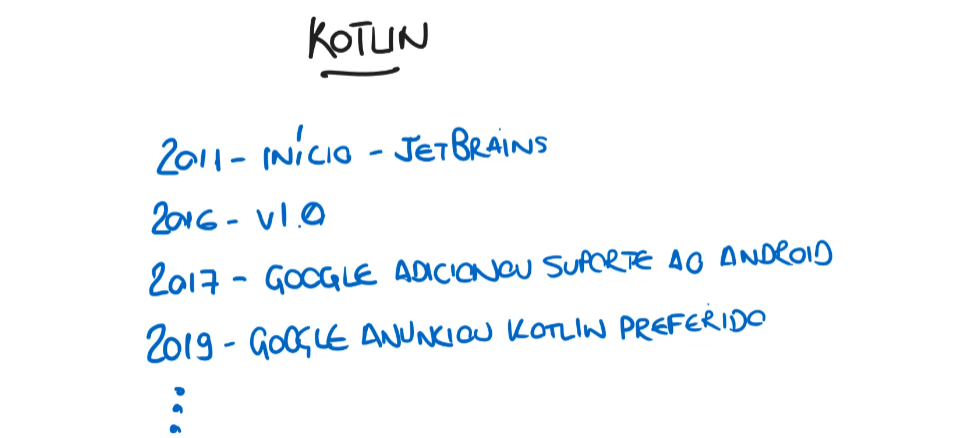 KOTLIN
2011 - INÍCIO - JETBRAINS
2016 - V1.0
2017 - GOOGLE ADICIONOU SUPORTE AO ANDROID
2019 - GOOGLE ANUNCIOU KOTLIN PREFERIDO